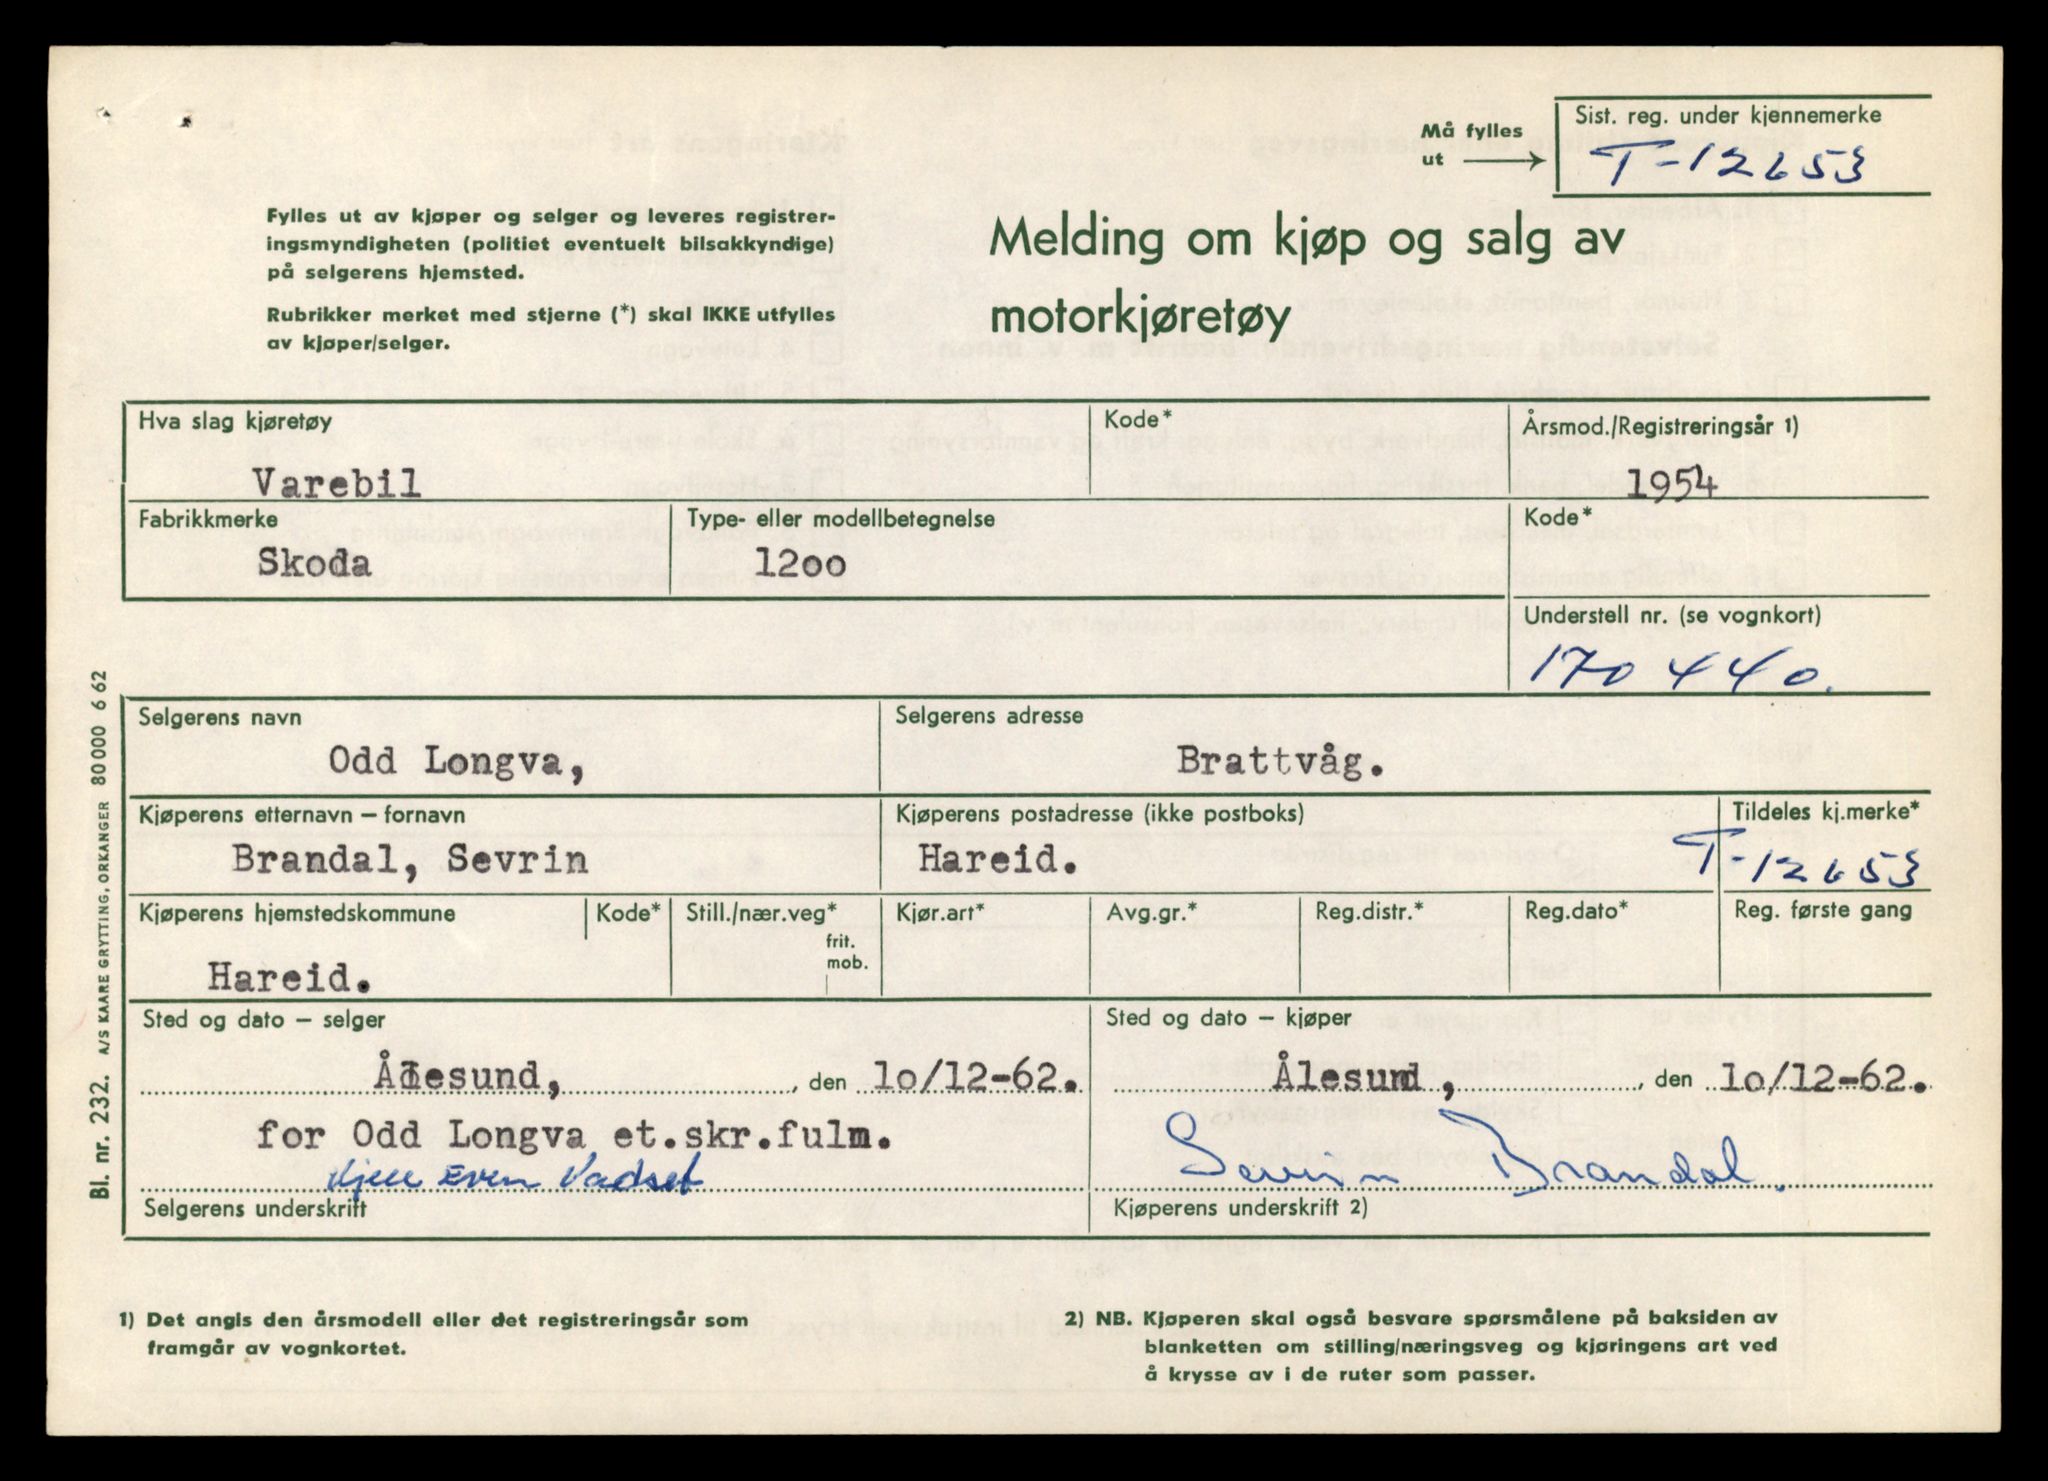 Må fylles
ut
Sist. reg. under kjennemerke
T-12653
Fylles ut av kjøper og selger og leveres registrer-
ingsmyndigheten (politiet eventuelt bilsakkyndige)
på selgerens hjemsted.
Rubrikker merket med stjerne (*) skal IKKE utfylles
av kjøper/selger.
Melding om kjøp og salg av
motorkjøretøy
Hva slag kjøretøy
Kode*
Årsmod./Registreringsår 1)
Varebil
1954
Fabrikkmerke
Type- eller modellbetegnelse
Kode*
Skoda
12oo
Understell nr. (se vognkort)
170440.
Selgerens navn
Selgerens adresse
Odd Longva,
Brattvåg.
Kjøperens etternavn – fornavn
Kjøperens postadresse (ikke postboks)
Tildeles kj.merke*
Brandal, Sevrin
Hareid.
T-12653
Kjøperens hjemstedskommune
Kode*
Still./nær.veg*
frit.
mob.
Kjør.art*
Avg.gr.*
Reg.distr.*
Reg.dato*
Reg. første gang
Hareid.
Sted og dato – selger
Sted og dato – kjøper
Ålesund, , den lo/12-62.
Ålesund, , den lo/12-62.
for Odd Longva et.skr.fulm.
Kjell Even Vadset
Sevrin Brandal.
Selgerens underskrift
Kjøperens underskrift 2)
1) Det angis den årsmodell eller det registreringsår som
framgår av vognkortet.
2) NB. Kjøperen skal også besvare spørsmålene på baksiden av
blanketten om stilling/næringsveg og kjøringens art ved
å krysse av i de ruter som passer.
Bl. nr. 232. A/S KAARE GRYTTING, ORKANGER 80000 6 62